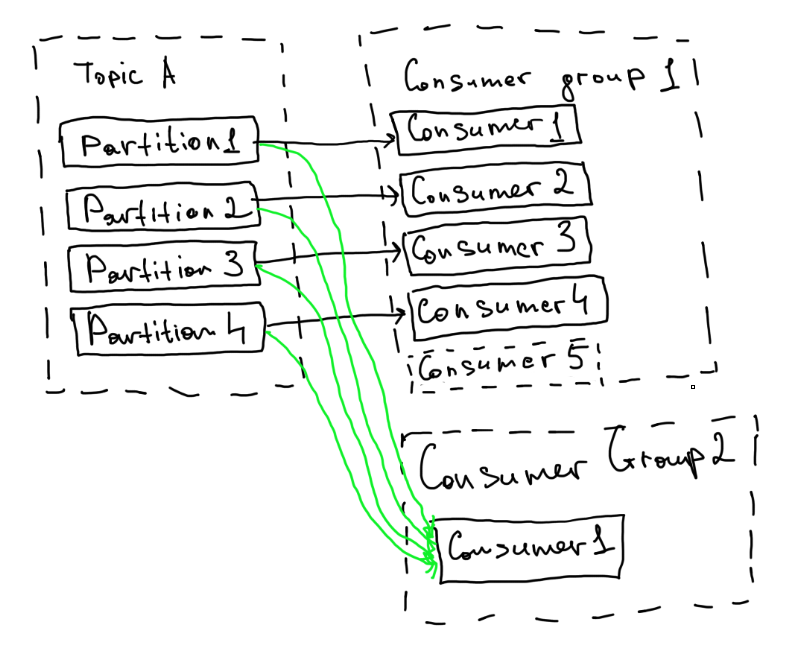 Topic A
Partition 1
Partition 2
Partition 3
Partition 4
Consumer group 1
Consumer 1
Consumer 2
Consumer 3
Consumer 4
Consumer 5
Consumer Group 2
Consumer 1